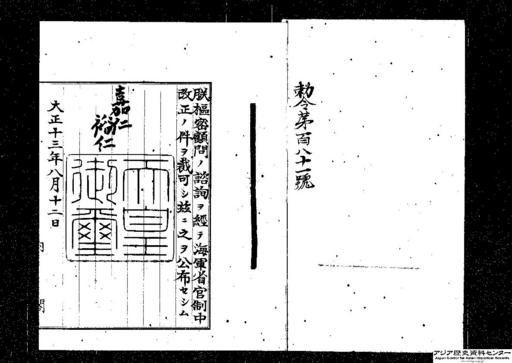 勅令第百八十一號
朕樞密顧問ノ諮詢ヲ經テ海軍省官制中
改正ノ件ヲ裁可シ茲ニ之ヲ公布セシム
嘉仁
裕仁
天皇
御璽
大正十三年八月十二日
内
閣
アジア歴史資料センター
Japan Center for Asian Historical Records